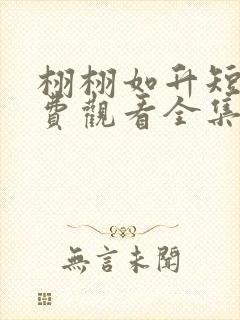 栩栩如升短
費觀看全集
無言未聞